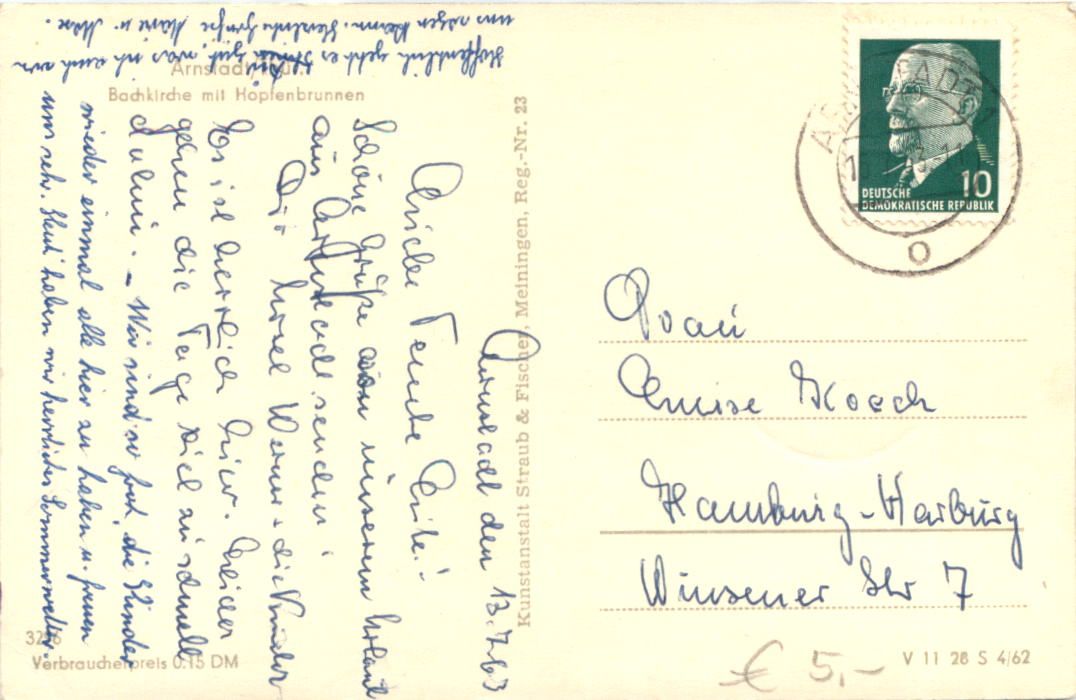 Arnstadt/Thür.
Bachkirche mit Hopfenbrunnen
Arnstadt den 13.7.63
Liebe Tante Luise!
Schöne Grüße von unserem Urlaub
aus Arnstadt senden
Dir Horst Werner + die Kinder
Es ist herrlich hier. Leider
gehen die Tage viel zu schnell
dahin. – Wir sind so froh, die Kinder
wieder einmal alle hier zu haben u. freuen
uns sehr. Heut' haben wir herrliches Sommerwetter.
Hoffentlich geht es Ihnen gut, was ich auch von
uns sagen kann. Herzliche Grüße Marie u. Max.
Kunstanstalt Straub & Fischer, Meiningen, Reg.-Nr. 23
ARNSTADT
DEUTSCHE
DEMOKRATISCHE REPUBLIK
10
Frau
Luise Koech
Hamburg-Harburg
Winsener Str 7
3296
Verbraucherpreis 0.15 DM
€ 5,-
V 11 28 S 4/62